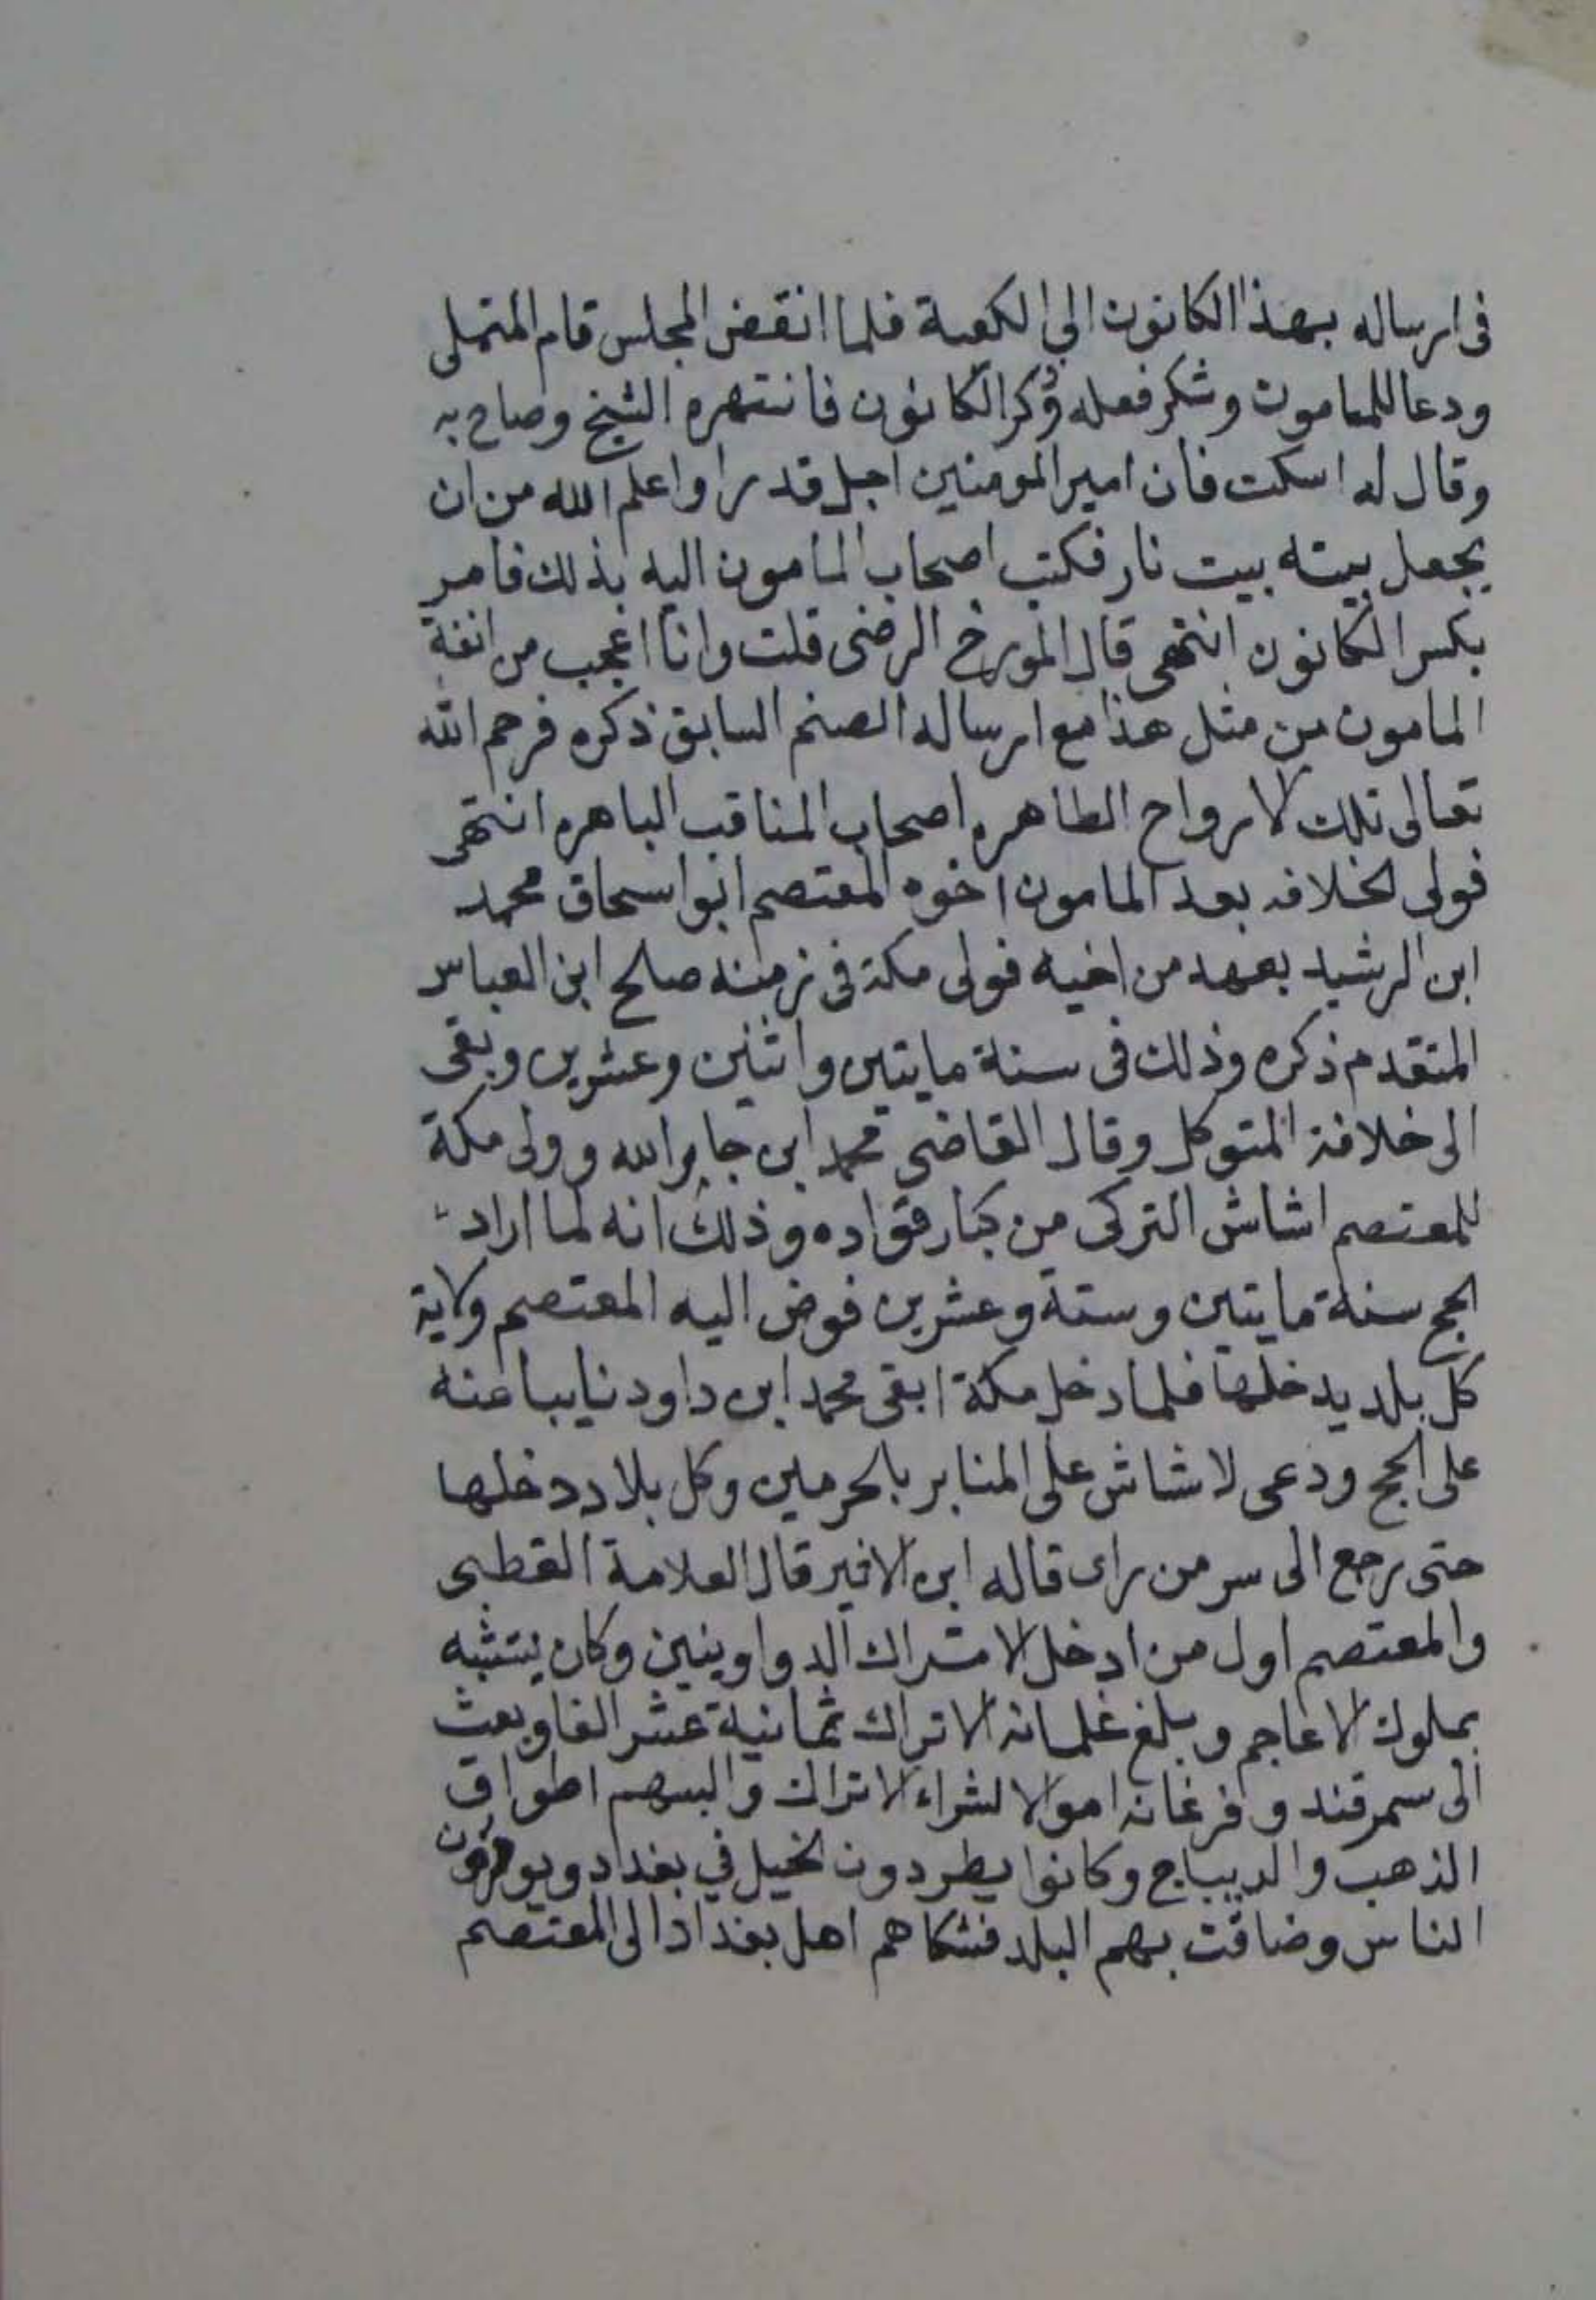 فى ارساله بهذا الكانون الي الكعبة فلما انقضى المجلس قام المتملى
ودعا للمامون وشكر فعله وذكر الكانون فانتهره الشيخ وصاح به
وقال له اسكت فان امير المومنين اجل قدرا واعلم الله من ان
يجعل بيته بيت نار فكتب اصحاب المامون اليه بذلك فامر
بكسر الكانون انتهى قال المورخ الرضى قلت وانا اعجب من انفة
المامون من مثل هذا مع ارساله الصنم السابق ذكره فرحم الله
تعالى تلك الارواح الطاهره اصحاب المناقب الباهره انتهى
فولى الخلافه بعد المامون اخوه المعتصم ابوا سحاق محمد
ابن الرشيد بعهد من اخيه فولى مكة فى زمنه صلح ابن العباس
المتقدم ذكره وذلك فى سنة مايتين واثنين وعشرين وبقى
الى خلافة المتوكل وقال القاضى محمد ابن جار الله وولى مكة
للمعتصم اشاش التركى من كبار قواده وذلك انه لما اراد
الحج سنة مايتين وستة وعشرين فوض اليه المعتصم ولاية
كل بلد يدخلها فلما دخل مكة ابقى محمد ابن داود نايبا عنه
على الحج ودعى لاشاش على المنابر بالحرمين وكل بلاد دخلها
حتى رجع الى سر من راى قاله ابن الاثير قال العلامة القطبى
والمعتصم اول من ادخل الاتراك الدواوينين وكان يتشبه
بملوك الاعاجم وبلغ غلمانه الاتراك ثمانية عشر الفا وبعث
الى سمرقند وفرغانه اموالا لشراء الاتراك والبسهم اطواق
الذهب والديباج وكانوا يطردون الخيل في بغداد ويوذون
الناس وضاقت بهم البلد فشكاهم اهل بغداد الى المعتصم